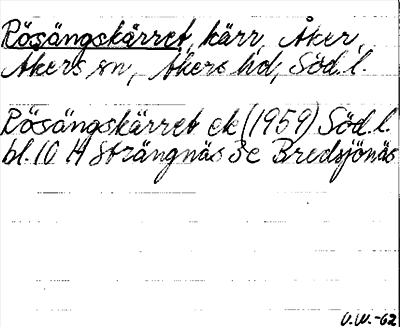 Rösängskärret, kärr, Åker,
Åkers sn, Åkers hd, Söd. l.
Rösängskärret ek (1959) Söd. l.
bl. 10 H Strängnäs 3e Bredsjönäs
V.W.-62